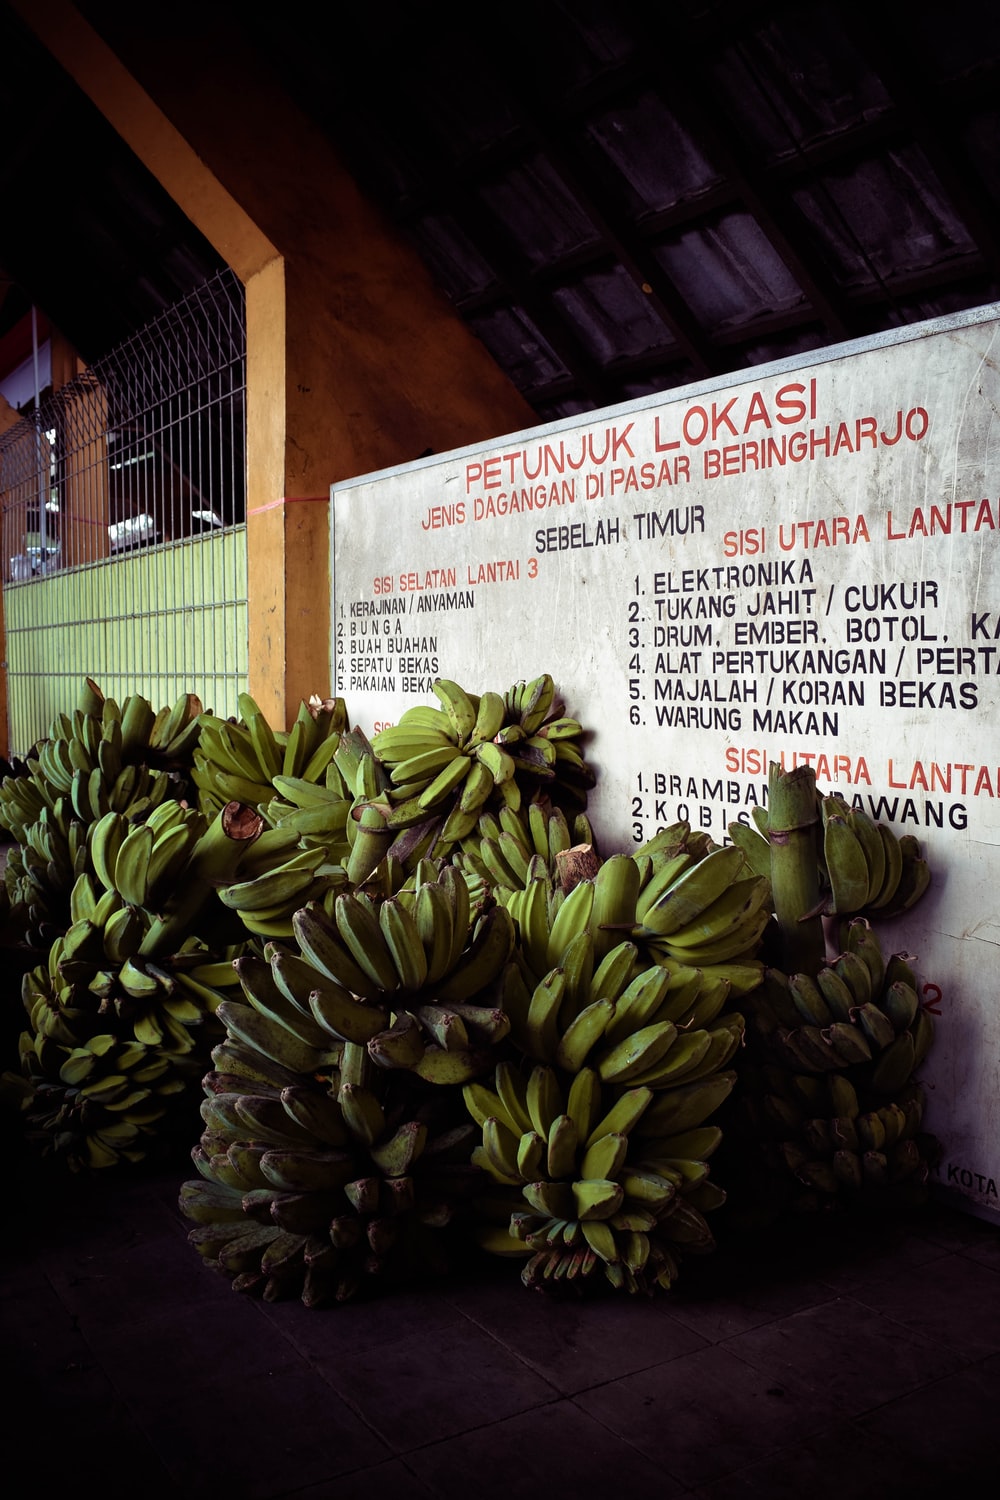 PETUNJUK LOKASI
JENIS DAGANGAN DI PASAR BERINGHARJO
SEBELAH TIMUR
SISI SELATAN LANTAI 3
1. KERAJINAN / ANYAMAN
2. BUNGA
3. BUAH BUAHAN
4. SEPATU BEKAS
5. PAKAIAN BEKAS
SISI UTARA LANTA
1. ELEKTRONIKA
2. TUKANG JAHIT / CUKUR
3. DRUM, EMBER, BOTOL, KA
4. ALAT PERTUKANGAN / PERTA
5. MAJALAH / KORAN BEKAS
6. WARUNG MAKAN
SISI UTARA LANTAI
1. BRAMBAN AWANG
2. KOBIS
3.
2
KOTA